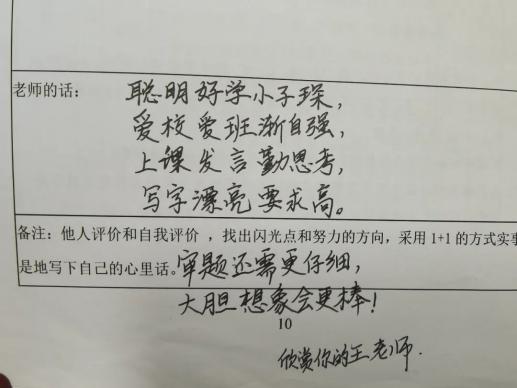 老师的话：聪明好学小子琛，
爱校爱班渐自强，
上课发言勤思考，
写字漂亮要求高。
备注：他人评价和自我评价 ，找出闪光点和努力的方向，采用1+1的方式实事
是地写下自己的心里话。审题还需更仔细，
大胆想象会更棒！
10
欣赏你的王老师.